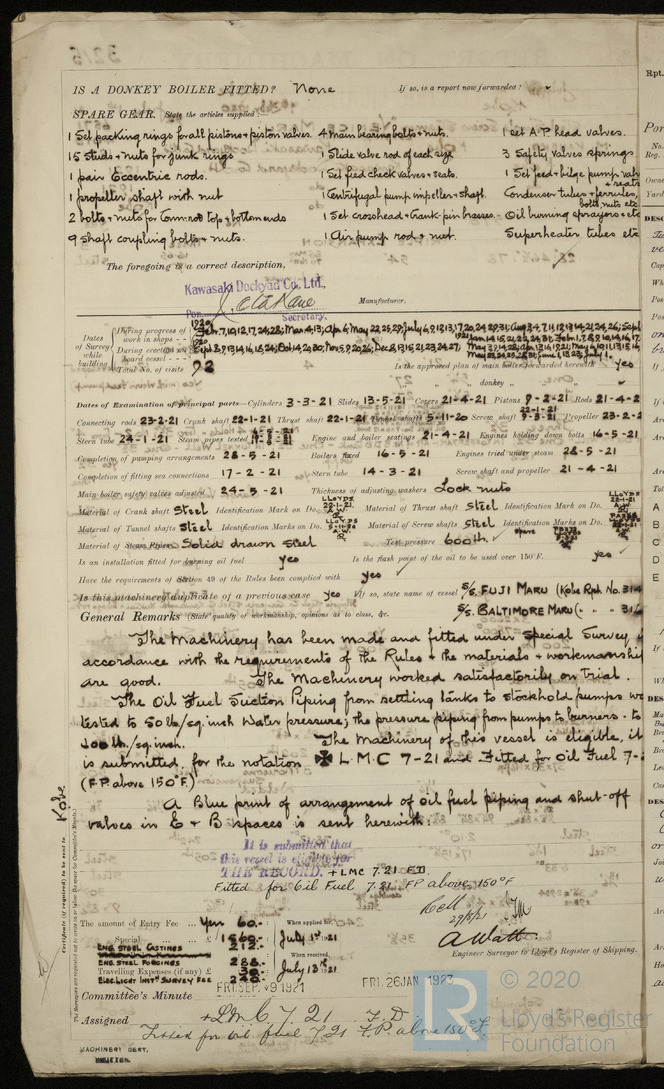 IS A DONKEY BOILER FITTED? None If so, is a report now forwarded?
SPARE GEAR. State the articles supplied:
1 Set packing rings for all pistons & piston valves. 4 Main bearing bolts & nuts. 1 set A.P. head valves.
15 Studs & nuts for junk rings 1 Slide valve rod of each size 3 Safety valves springs
1 pair Eccentric rods. 1 Set feed check valves & seats. 1 Set feed & bilge pump valv
& seats
1 propeller shaft with nut 1 Centrifugal pump impeller & shaft. Condenser tubes & ferrules,
bolts nuts etc
2 bolts & nuts for Conn: rod top & bottom ends 1 Set crosshead & Crank-pin brasses. Oil burning sprayers & etc
9 Shaft coupling bolts & nuts. 1 Air pump rod & nut. Superheater tubes etc
The foregoing is a correct description,
Kawasaki Dockyard Co. Ltd.,
Manufacturer.
Secretary.
Dates of Survey while building
During progress of work in shops
During erection on board vessel
Total No. of visits 92
Is the approved plan of main boiler forwarded herewith yes
" " " donkey " "
Dates of Examination of principal parts—Cylinders 3-3-21 Slides 13-5-21 Covers 21-4-21 Pistons 9-2-21 Rods 21-4-2
Connecting rods 23-2-21 Crank shaft 22-1-21 Thrust shaft 22-1-21 Tunnel shafts 5-11-20 Screw shaft 22-1-21 9-3-21 Propeller 23-2-2
Stern tube 24-1-21 Steam pipes tested Engine and boiler seatings 21-4-21 Engines holding down bolts 16-5-21
Completion of pumping arrangements 28-5-21 Boilers fixed 16-5-21 Engines tried under steam 28-5-21
Completion of fitting sea connections 17-2-21 Stern tube 14-3-21 Screw shaft and propeller 21-4-21
Main boiler safety valves adjusted 24-5-21 Thickness of adjusting washers Lock nuts
Material of Crank shaft Steel Identification Mark on Do. LLOYDS 22-1-21 Material of Thrust shaft Steel Identification Mark on Do. LLOYDS 22-1-21
Material of Tunnel shafts Steel Identification Marks on Do. LLOYDS Material of Screw shafts Steel Identification Marks on Do. LLOYDS
Material of Steam Pipes Solid drawn steel Test pressure 600 lb. spare
Is an installation fitted for burning oil fuel yes Is the flash point of the oil to be used over 150°F. yes
Have the requirements of Section 49 of the Rules been complied with yes
Is this machinery duplicate of a previous case yes If so, state name of vessel S/S. FUJI MARU (Kobe Rph. No. 314
S/S. BALTIMORE MARU ( " " 31
General Remarks (State quality of workmanship, opinions as to class, &c.
The Machinery has been made and fitted under Special Survey,
accordance with the requirements of the Rules & the materials & workmanship
are good. The Machinery worked satisfactorily on trial.
The Oil Fuel Suction Piping from settling tanks to stockhold pumps we
tested to 50 lb/sq. inch Water pressure; the pressure piping from pumps to burners - to
400 lb/sq. inch. The Machinery of this vessel is eligible, it
is submitted, for the notation ✠ L.M.C 7-21 and Fitted for Oil Fuel 7-
(F.P. above 150°F.)
A Blue print of arrangement of oil fuel piping and shut-off
valves in E & B spaces is sent herewith.
It is submitted that
this vessel is eligible for
THE RECORD. + LMC 7.21 FD.
Fitted for Oil Fuel 7.21 FP above 150°F
Certificate (if required) to be sent to Kobe
(The Surveyors are requested not to write on or below the space for Committee's Minute.)
The amount of Entry Fee ... Yen 60.- When applied for,
Special 1560.- July 1st 1921
ENG. STEEL CASTINGS 212.- When received,
ENG STEEL FORGINGS 288.-
Travelling Expenses (if any) £ 30.- July 13th 1921
ELEC. LIGHT INSTN SURVEY FEE
A Watt
Engineer Surveyor to Lloyd's Register of Shipping.
Committee's Minute FRI. SEP. 9 1921 FRI. 26 JAN. 1923
Assigned + LMC 7.21 F.D.
Fitted for oil fuel 7.21 F.P. above 150°F.
MACHINERY CERT.
WRITTEN.
Rpt.
Por
No.
Reg.
A
B
C
D
E
© 2020
Lloyd's Register
Foundation
LR